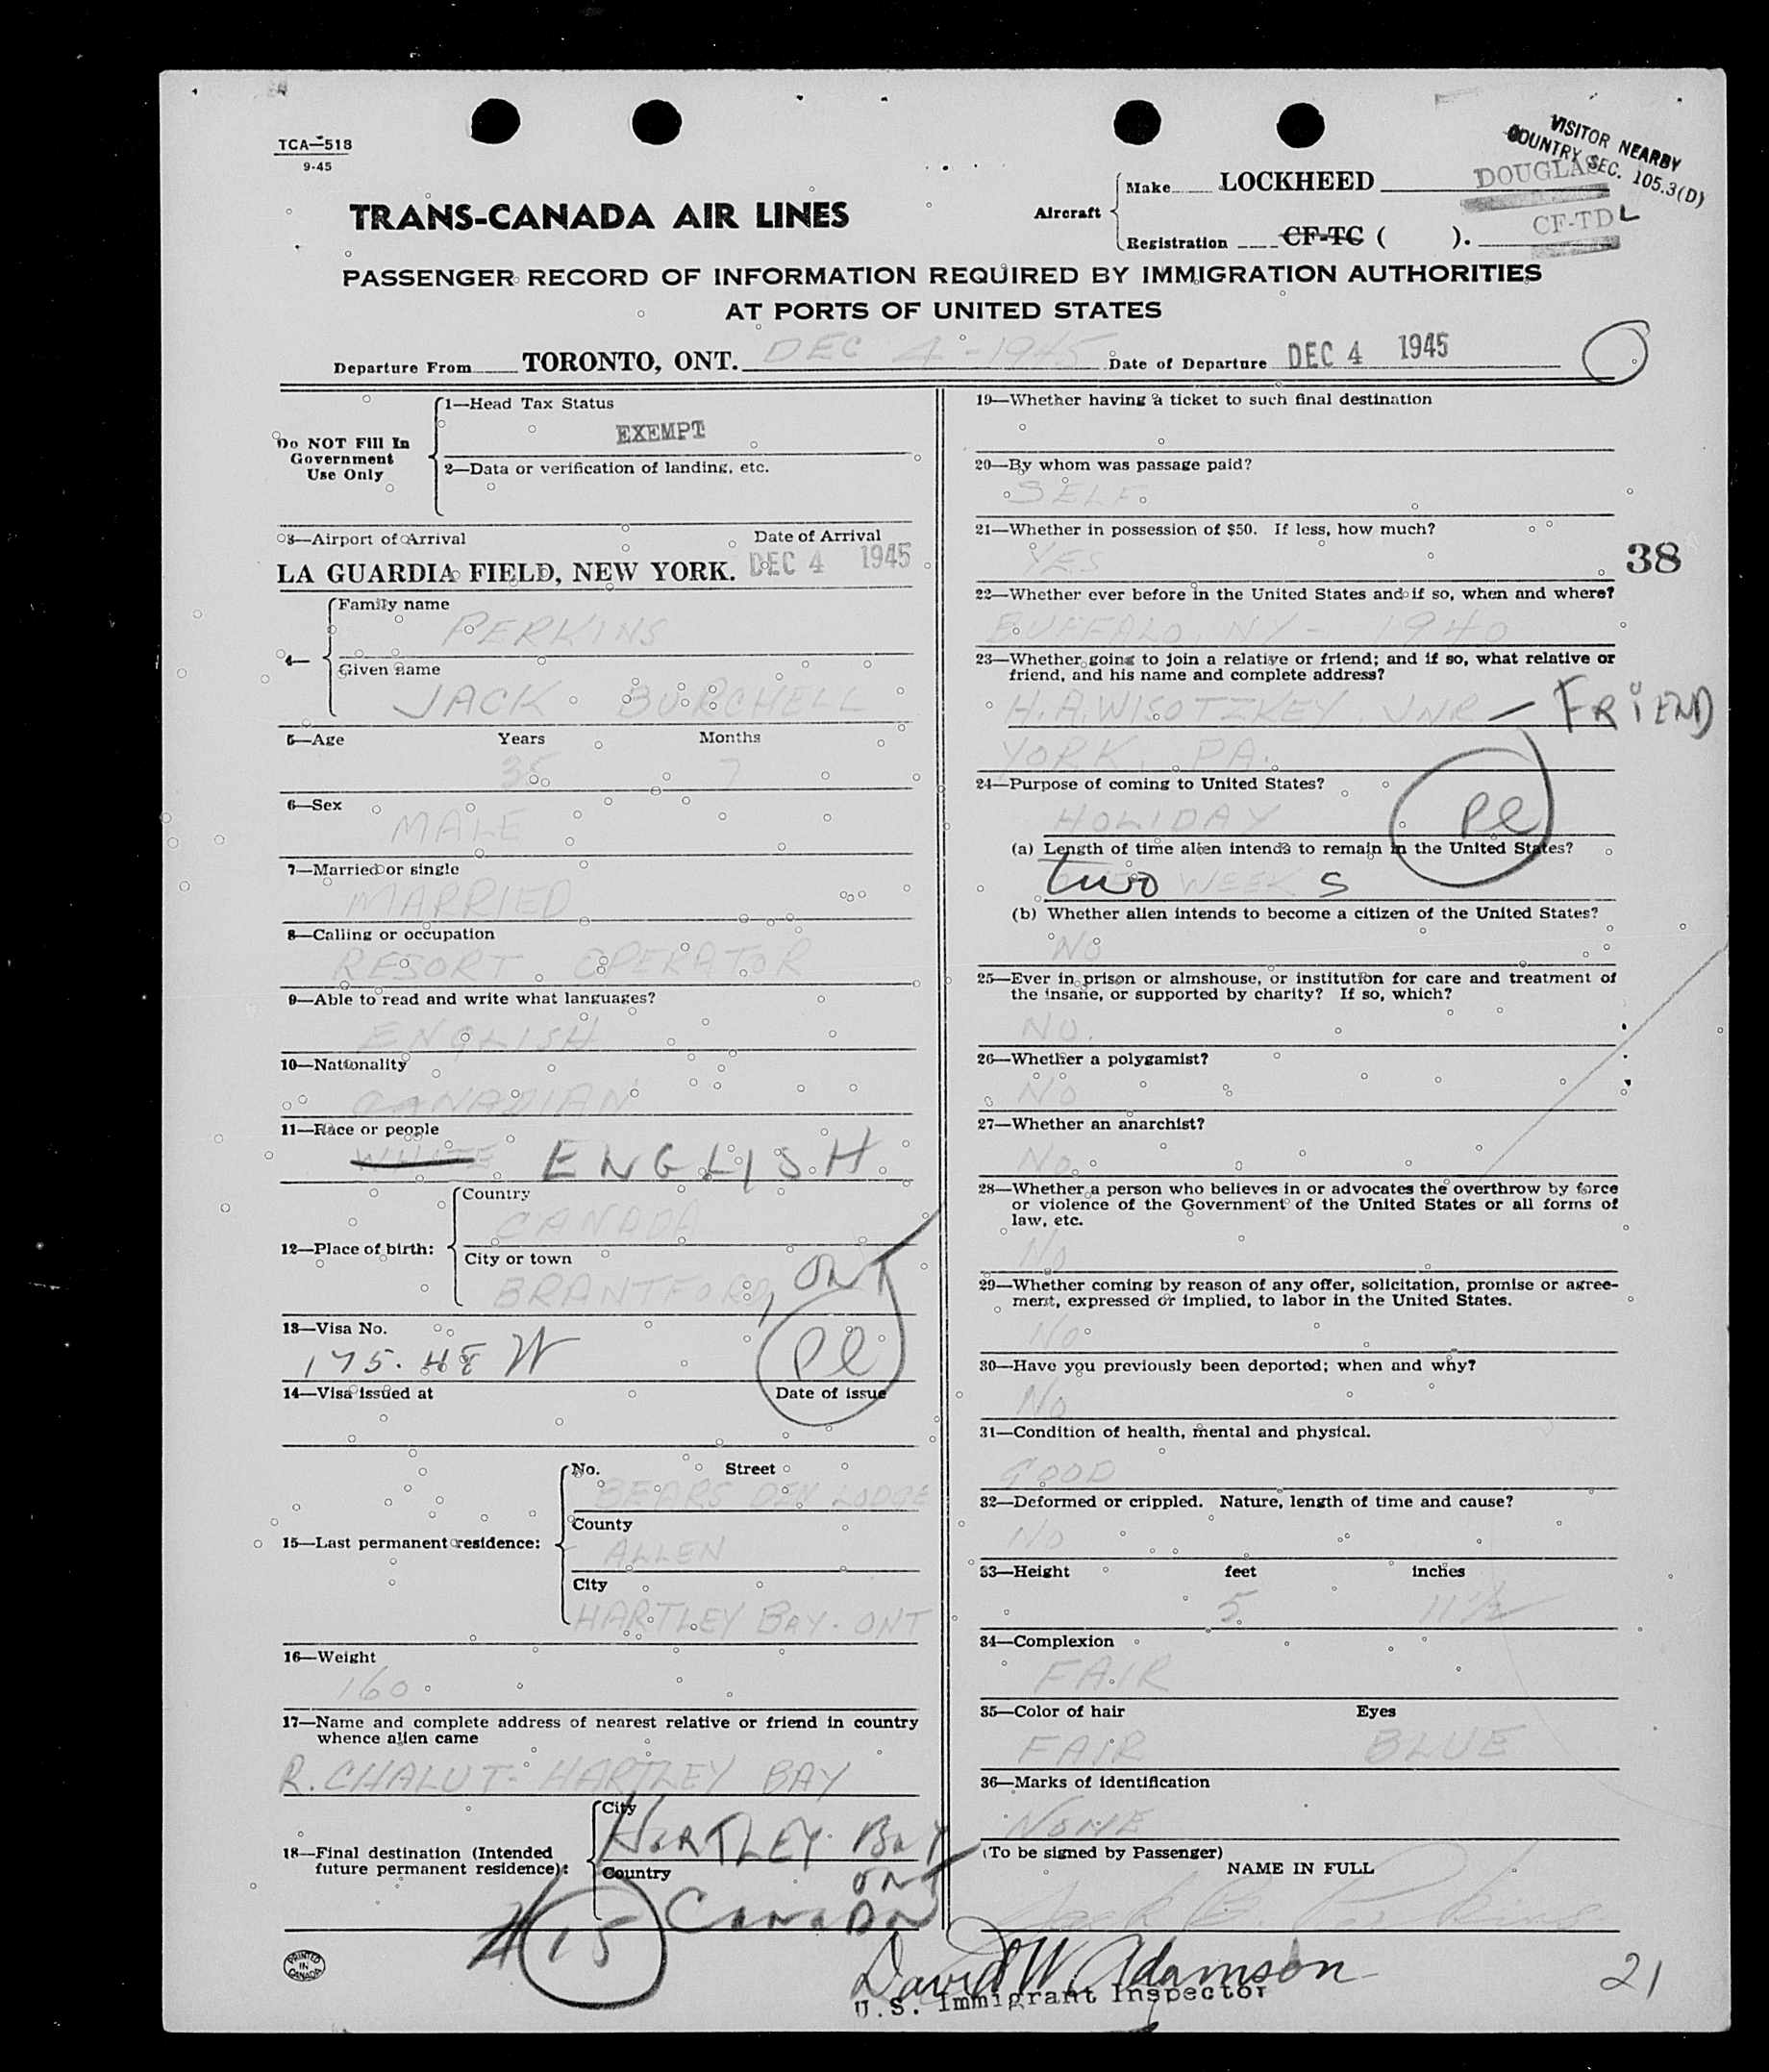 TCA—518
9-45
VISITOR NEARBY
COUNTRY SEC. 105.3(D)
TRANS-CANADA AIR LINES
Aircraft
Make LOCKHEED DOUGLAS
Registration CF-TC ( ). CF-TDL
PASSENGER RECORD OF INFORMATION REQUIRED BY IMMIGRATION AUTHORITIES
AT PORTS OF UNITED STATES
Departure From TORONTO, ONT. DEC 4-1945 Date of Departure DEC 4 1945
Do NOT Fill In
Government
Use Only
1—Head Tax Status
EXEMPT
2—Data or verification of landing, etc.
3—Airport of Arrival Date of Arrival
LA GUARDIA FIELD, NEW YORK. DEC 4 1945
4—
Family name
PERKINS
Given name
JACK BURCHELL
5—Age Years Months
35 7
6—Sex
MALE
7—Married or single
MARRIED
8—Calling or occupation
RESORT OPERATOR
9—Able to read and write what languages?
ENGLISH
10—Nationality
CANADIAN
11—Race or people
WHITE ENGLISH
12—Place of birth:
Country
CANADA
City or town
BRANTFORD, ONT
13—Visa No.
Pl
14—Visa issued at Date of issue
15—Last permanent residence:
No. Street
BEARS DEN LODGE
County
ALLEN
City
HARTLEY BAY. ONT
16—Weight
160
17—Name and complete address of nearest relative or friend in country
whence alien came
R. CHALUT- HARTLEY BAY
18—Final destination (Intended
future permanent residence):
City
HARTLEY BAY
ONT
Country
CANADA
#15
PRINTED
IN
CANADA
19—Whether having a ticket to such final destination
20—By whom was passage paid?
SELF
21—Whether in possession of $50. If less, how much?
YES
38
22—Whether ever before in the United States and if so, when and where?
BUFFALO, NY - 1940
23—Whether going to join a relative or friend; and if so, what relative or
friend, and his name and complete address?
H.A. WISOTZKEY JNR — FRIEND
YORK, PA.
24—Purpose of coming to United States?
HOLIDAY
Pl
(a) Length of time alien intends to remain in the United States?
two WEEKS
(b) Whether alien intends to become a citizen of the United States?
NO
25—Ever in prison or almshouse, or institution for care and treatment of
the insane, or supported by charity? If so, which?
NO.
26—Whether a polygamist?
NO
27—Whether an anarchist?
NO
28—Whether a person who believes in or advocates the overthrow by force
or violence of the Government of the United States or all forms of
law, etc.
NO
29—Whether coming by reason of any offer, solicitation, promise or agree-
ment, expressed or implied, to labor in the United States.
NO
30—Have you previously been deported; when and why?
NO
31—Condition of health, mental and physical.
GOOD
32—Deformed or crippled. Nature, length of time and cause?
NO
33—Height feet inches
5 11½
34—Complexion
FAIR
35—Color of hair Eyes
FAIR BLUE
36—Marks of identification
NONE
(To be signed by Passenger)
NAME IN FULL
Jack B. Perkins
David W. Adamson
U.S. Immigrant Inspector
21